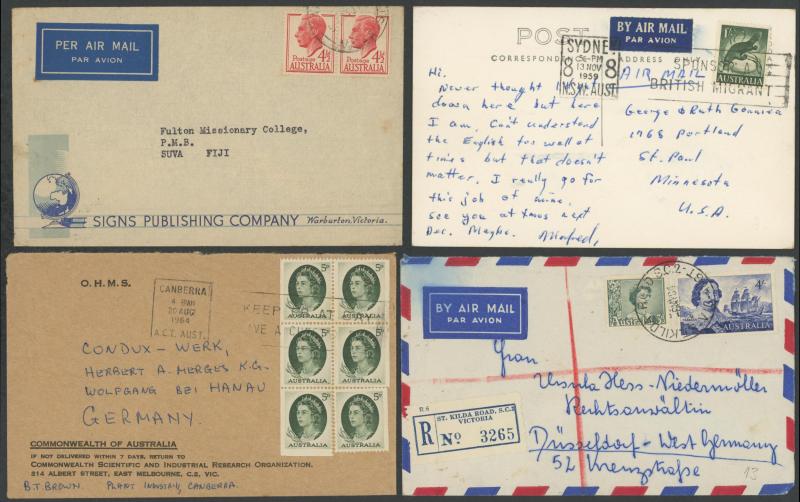 PER AIR MAIL
PAR AVION
4½ 4½
Postage Postage
AUSTRALIA AUSTRALIA
Fulton Missionary College,
P.M.B.
SUVA FIJI
SIGNS PUBLISHING COMPANY Warburton, Victoria.
POST
BY AIR MAIL
PAR AVION
CORRESPONDENCE ADDRESS
SYDNEY
8 6-PM 8
13 NOV
1959
N.S.W. AUST
SPONSOR
BRITISH MIGRANT
AIR MAIL
1/-
AUSTRALIA
Hi,
Never thought I'd get
down here but here
I am. Can't understand
the English too well at
times but that doesn't
matter. I really go for
this job of mine.
See you at Xmas next
Dec. Maybe.
George & Ruth
1968 Portland
St. Paul
Minnesota
U.S.A.
O.H.M.S.
CANBERRA
20 AUG
1964
A.C.T. AUST.
KEEP
5D 5D
AUSTRALIA AUSTRALIA
5D 5D
AUSTRALIA AUSTRALIA
5D 5D
AUSTRALIA AUSTRALIA
CONDUX - WERK,
HERBERT A. MERGES K.G.
WOLFGANG BEI HANAU
GERMANY
COMMONWEALTH OF AUSTRALIA
IF NOT DELIVERED WITHIN 7 DAYS, RETURN TO
COMMONWEALTH SCIENTIFIC AND INDUSTRIAL RESEARCH ORGANIZATION.
314 ALBERT STREET, EAST MELBOURNE, C.2, VIC.
B.T. BROWN. PLANT INDUSTRY, CANBERRA.
BY AIR MAIL
PAR AVION
AUSTRALIA
4/-
AUSTRALIA
Frau
Ursula Hess-Niedermöller
Rechtsanwältin
Düsseldorf-West Germany
R 6
ST. KILDA ROAD, S.C.2
VICTORIA
R No 3265
13